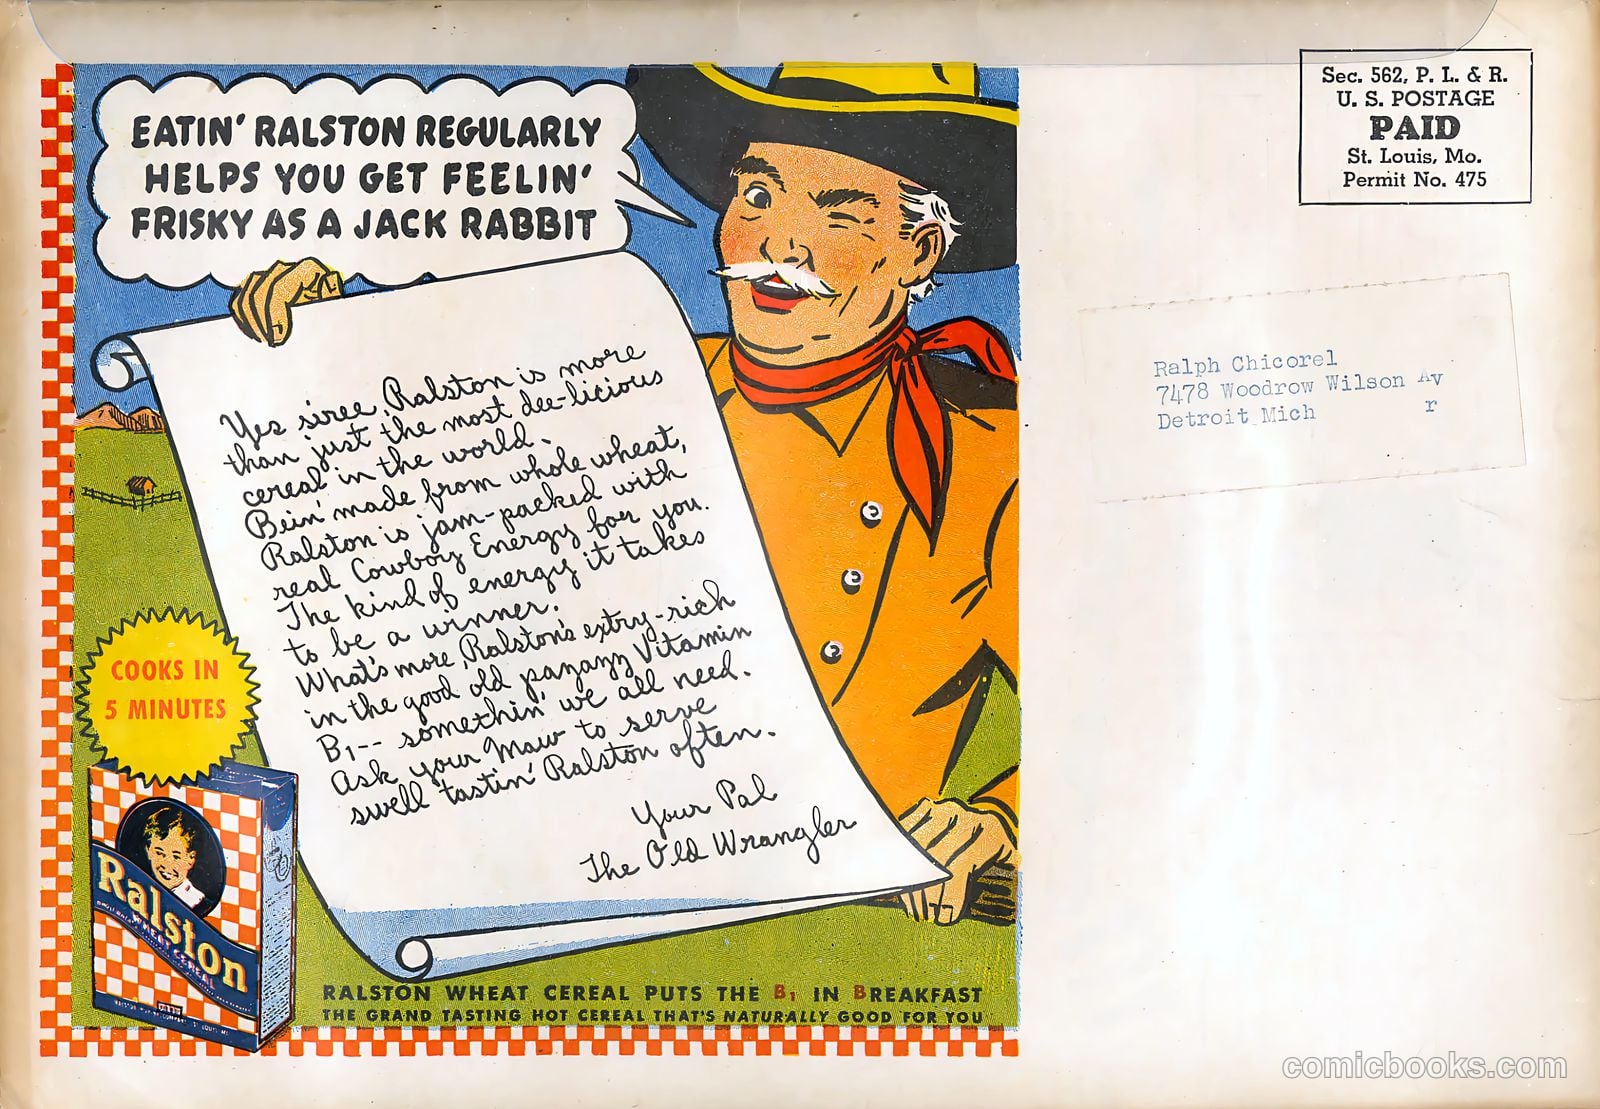 EATIN' RALSTON REGULARLY
HELPS YOU GET FEELIN'
FRISKY AS A JACK RABBIT
Yes siree, Ralston is more
than just the most dee-licious
cereal in the world.
Bein' made from whole wheat,
Ralston is jam-packed with
real Cowboy Energy for you.
The kind of energy it takes
to be a winner.
What's more, Ralston's extry-rich
in the good old pazazzy Vitamin
B1-- somethin' we all need.
Ask your Maw to serve
swell tastin' Ralston often.
Your Pal
The Old Wrangler
COOKS IN
5 MINUTES
Ralston
WHEAT CEREAL
RALSTON WHEAT CEREAL PUTS THE B1 IN BREAKFAST
THE GRAND TASTING HOT CEREAL THAT'S NATURALLY GOOD FOR YOU
Sec. 562, P. L. & R.
U. S. POSTAGE
PAID
St. Louis, Mo.
Permit No. 475
Ralph Chicorel
7478 Woodrow Wilson Av
Detroit Mich r
comicbooks.com